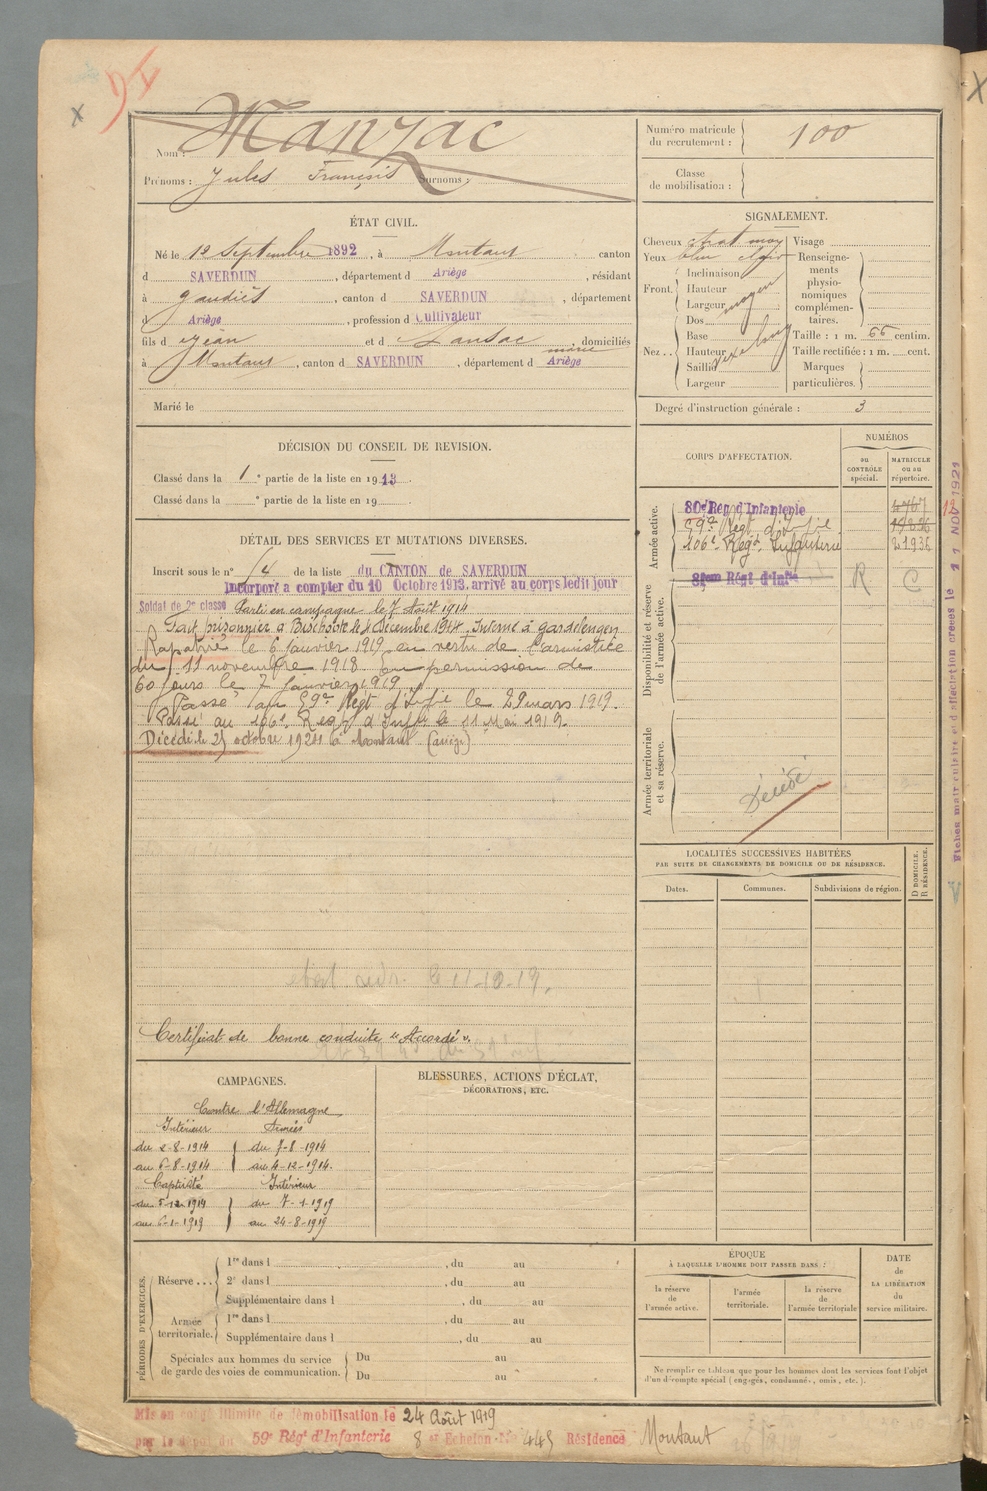 Manzac
Nom :
Prénoms : Jules François Surnoms :
Numéro matricule
du recrutement : 100
Classe
de mobilisation :
ÉTAT CIVIL.
Né le 12 Septembre 1892, à Montaut canton
d SAVERDUN, département d Ariège, résidant
à Gaudiès, canton d SAVERDUN, département
d Ariège, profession d Cultivateur
fils d Jean et d Lansac marie, domiciliés
à Montaut, canton d SAVERDUN, département d Ariège
Marié le
SIGNALEMENT.
Cheveux chat moy Visage
Yeux bleu clair
Front. Inclinaison
Hauteur
Largeur moyen
Nez .. Dos
Base
Hauteur
Saillie
Largeur
Renseigne-
ments
physio-
nomiques
complémen-
taires.
Taille : 1 m. 66 centim.
Taille rectifiée : 1 m. cent.
Marques
particulières.
Degré d'instruction générale : 3
DÉCISION DU CONSEIL DE REVISION.
Classé dans la 1e partie de la liste en 1913
Classé dans la e partie de la liste en 19
DÉTAIL DES SERVICES ET MUTATIONS DIVERSES.
Inscrit sous le n° 14 de la liste du CANTON de SAVERDUN
Incorporé a compter du 10 Octobre 1913. arrivé au corps ledit jour
Soldat de 2e classe Parti en campagne le 7 Août 1914
Fait prisonnier à Bischoote le 4 Décembre 1914. Interné à Gardelengen
Rapatrié le 6 Janvier 1919 en vertu de l'armistice
du 11 novembre 1918 en permission de
60 jours le 7 Janvier 1919
Passé au 59e Régt d'Infie le 29 mars 1919.
Passé au 106e Regt d'Infie le 11 Mai 1919.
Décédé le 25 octobre 1921 à Montaut (ariège)
11-10-19.
Certificat de bonne conduite "Accordé".
CORPS D'AFFECTATION.
NUMÉROS
au
CONTRÔLE
spécial.
MATRICULE
ou au
répertoire.
Armée active.
80e Reg d'Infanterie 4767
59e Régt d'Infie
106e Régt Infanterie 21936
Disponibilité et réserve
de l'armée active.
R C
Armée territoriale
et sa réserve.
Décédé
Fiches matriculaire et d'affectation créées le 11 NOV 1921
LOCALITÉS SUCCESSIVES HABITÉES
PAR SUITE DE CHANGEMENTS DE DOMICILE OU DE RÉSIDENCE.
Dates. Communes. Subdivisions de région.
D DOMICILE.
R RÉSIDENCE.
CAMPAGNES.
Contre l'Allemagne
Intérieur Armées
du 2-8-1914 du 7-8-1914
au 6-8-1914 au 4-12-1914.
Captivité Intérieur
du 5-12-1914 du 7-1-1919
au 6-1-1919 au 24-8-1919
BLESSURES, ACTIONS D'ÉCLAT,
DÉCORATIONS, ETC.
PÉRIODES D'EXERCICES.
Réserve ...
1re dans l , du au
2e dans l , du au
Supplémentaire dans l , du au
Armée
territoriale.
1re dans l , du au
Supplémentaire dans l , du au
Spéciales aux hommes du service
de garde des voies de communication.
Du au
Du au
ÉPOQUE
À LAQUELLE L'HOMME DOIT PASSER DANS :
la réserve
de
l'armée active.
l'armée
territoriale.
la réserve
de
l'armée territoriale
DATE
de
LA LIBÉRATION
du
service militaire.
Ne remplir ce tableau que pour les hommes dont les services font l'objet
d'un décompte spécial (engagés, condamnés, omis, etc.).
Mis en congé illimité de démobilisation le 24 Août 1919
par le dépôt du 59e Régt d'Infanterie 8e Echelon No 445 Résidence Montaut